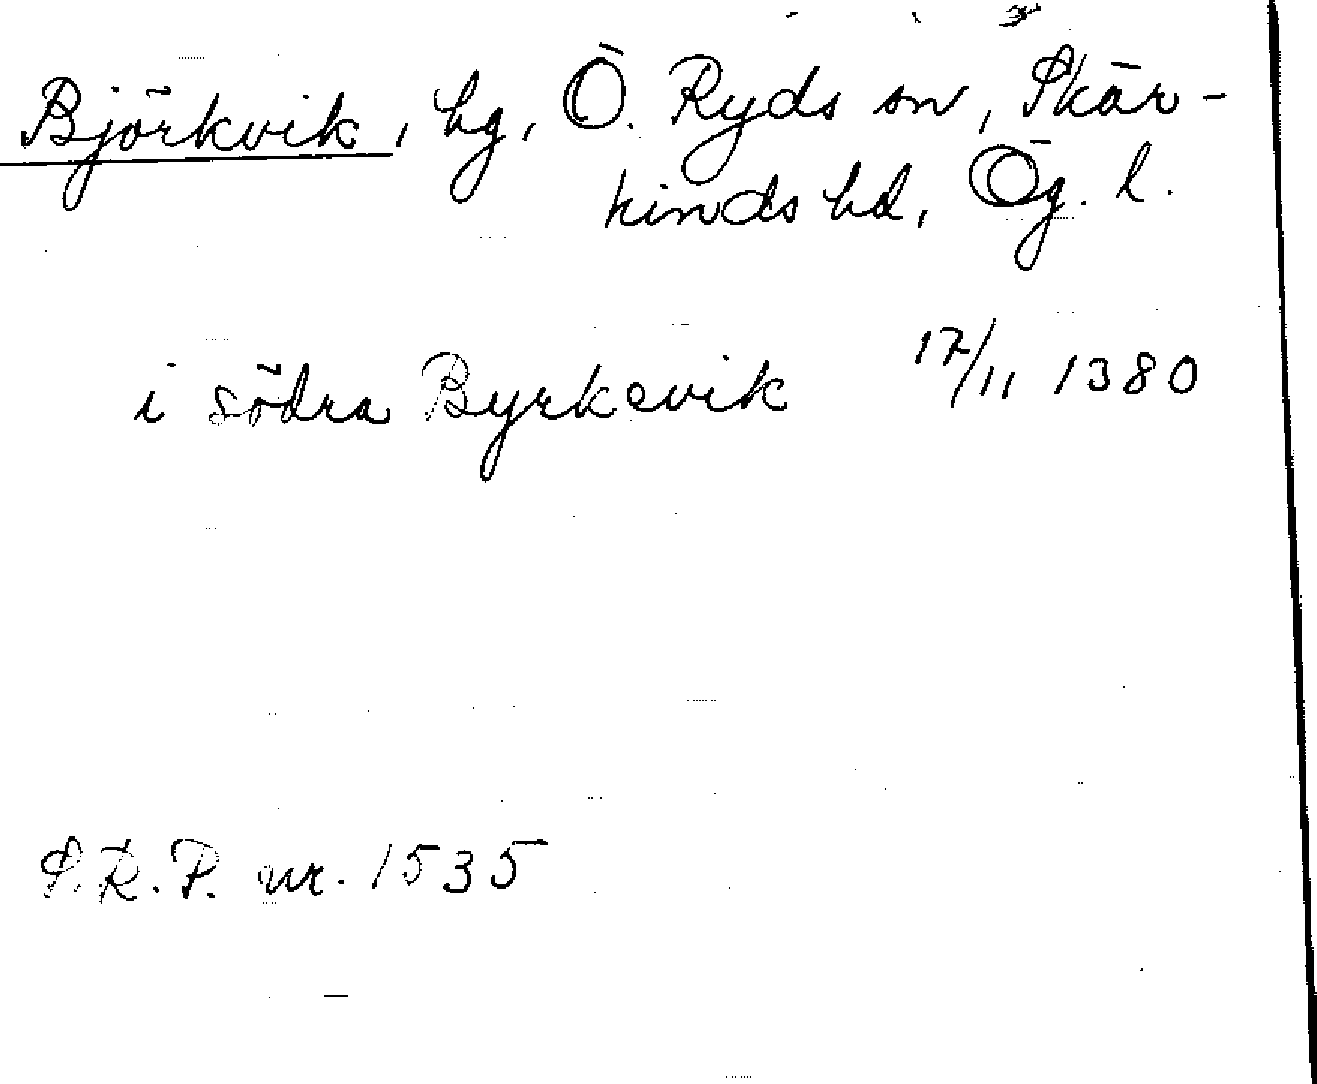 Björkvik, hg, Ö. Ryds sn, Skär-
kinds hd, Ög. l.
i södra Byrkevik 17/11 1380
S.R.P. nr. 1535